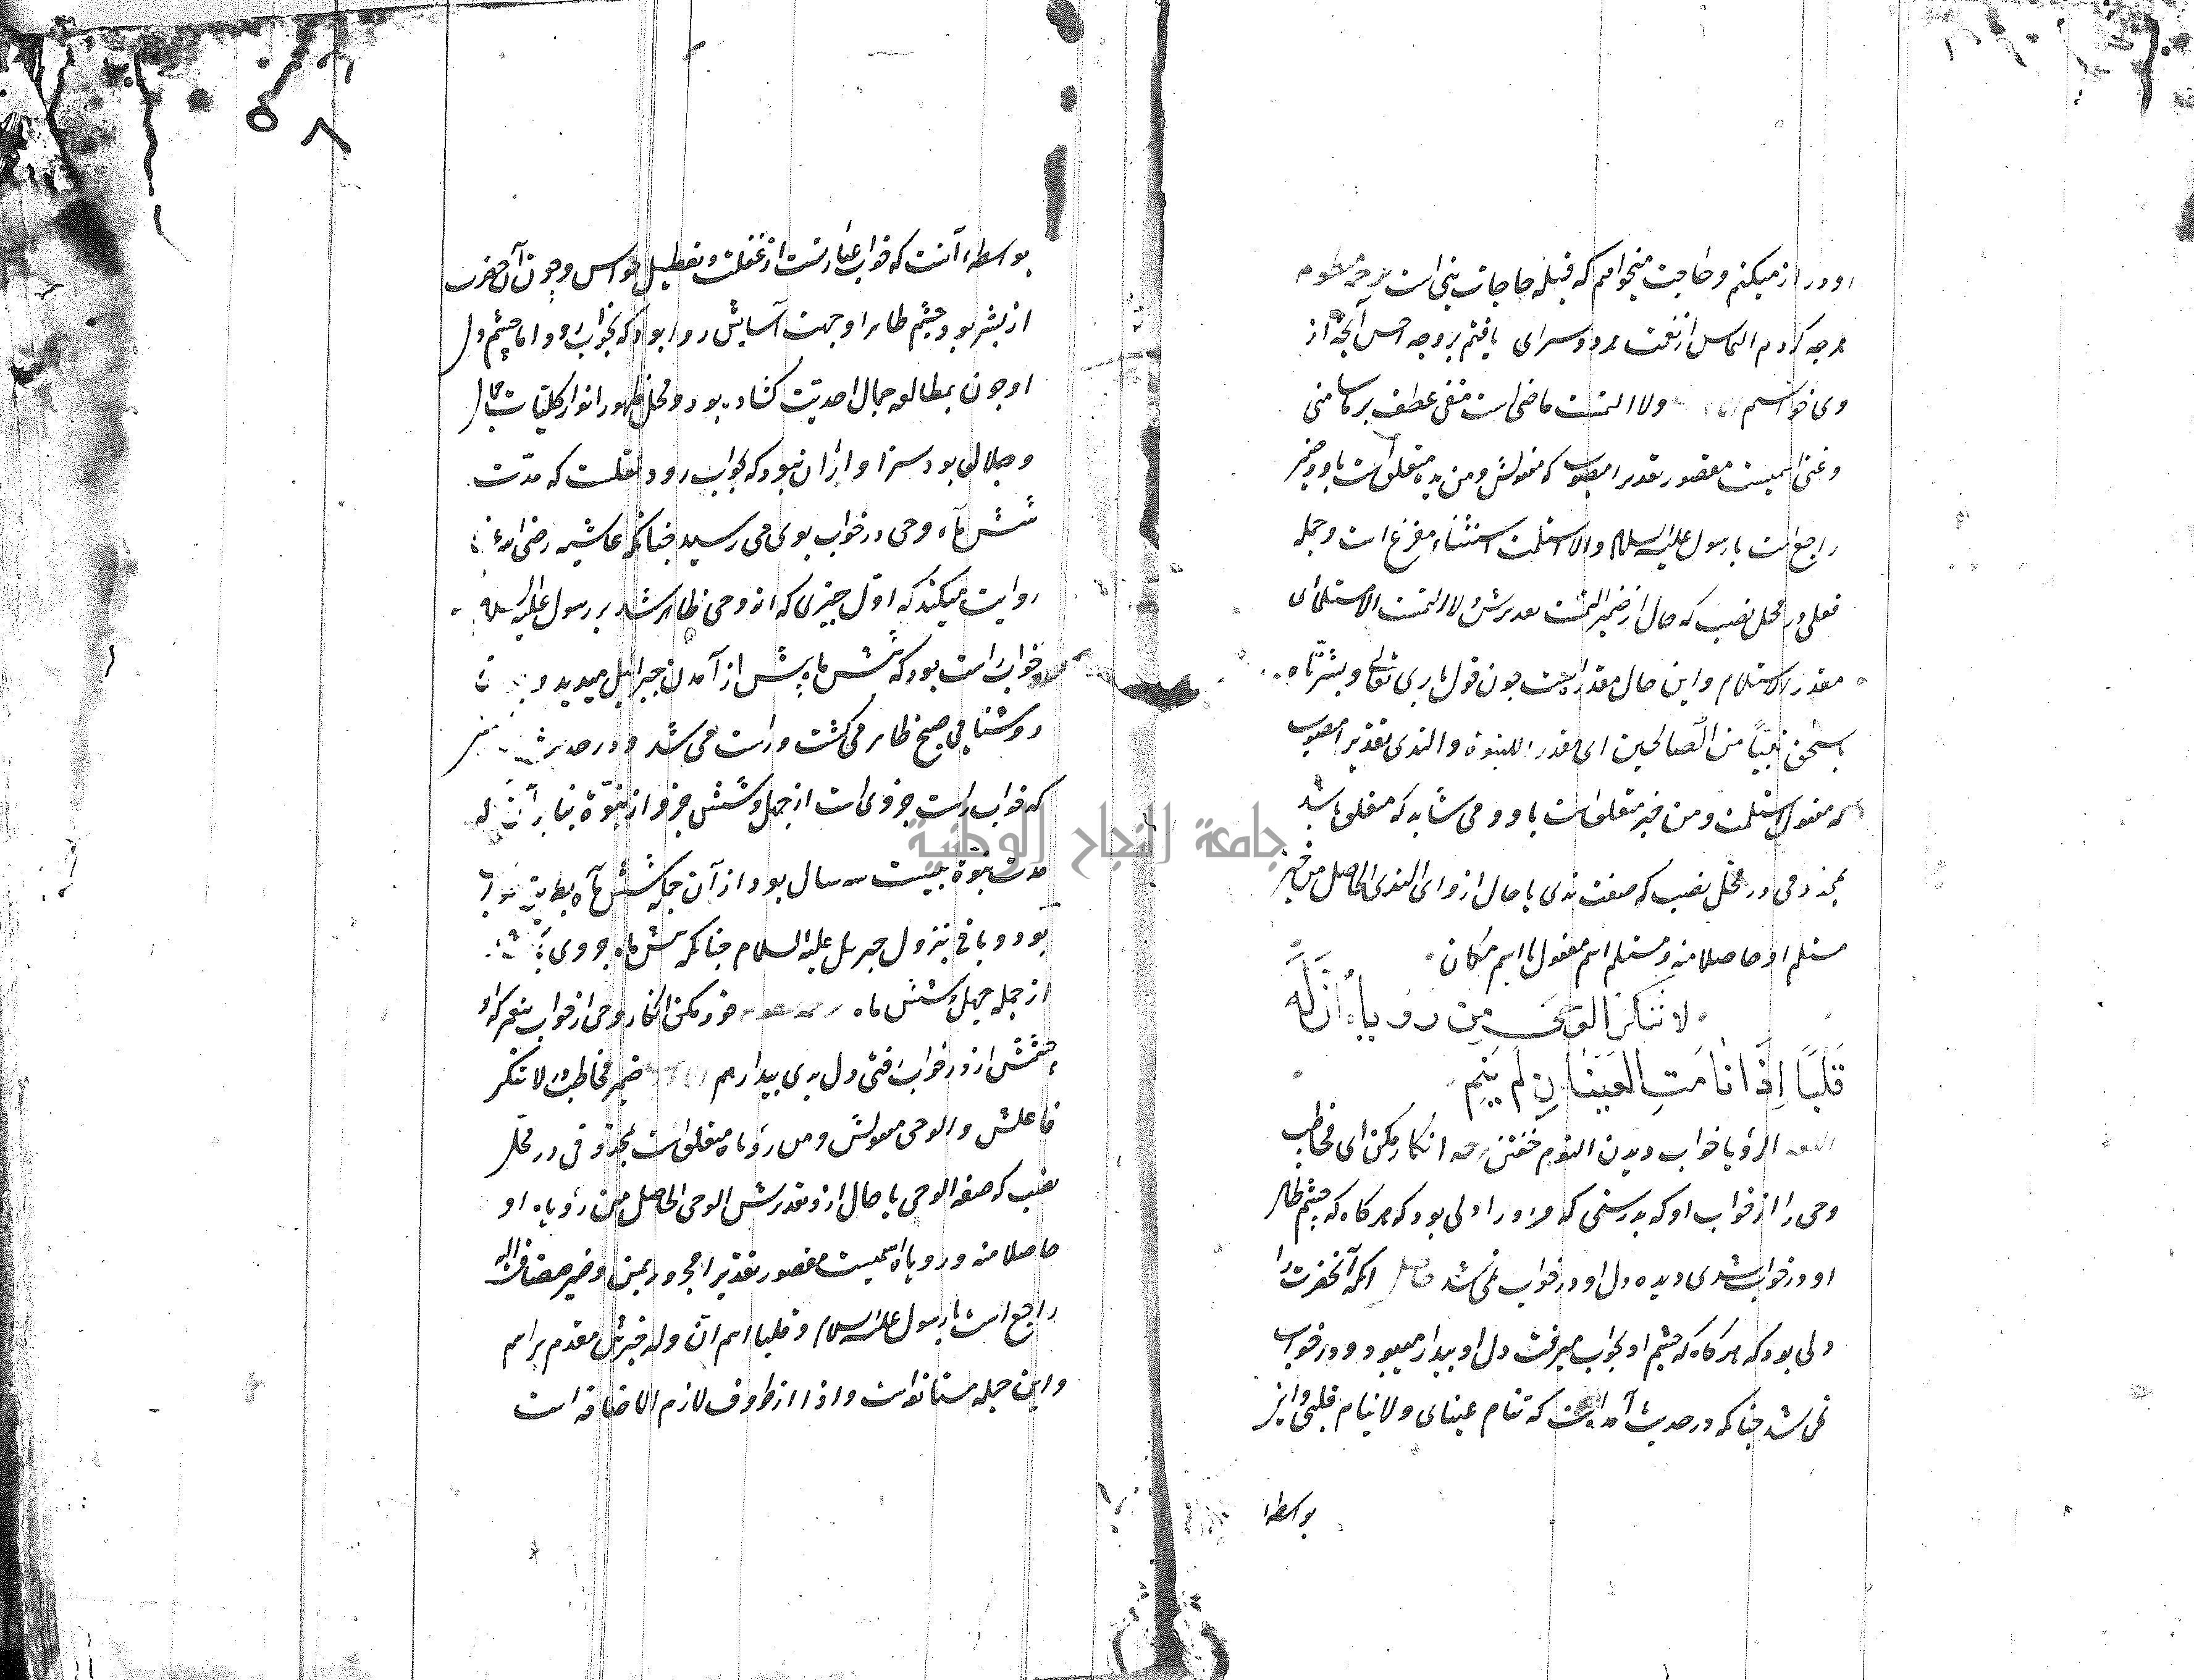 او دراز میکنم و حاجت میخواهم که قبله حاجات بنی است
هرچه کردم التماس از نعمت هر دو سرای یافتم بر وجه احسن آنچه از
وی خواستم ولا التمست ماضی است منفی عطف بر ماسامنی
وغنی اسمیست مقصور تقدیرا منصوب که مفعولش ومن یده متعلق است باو وضمیر
راجع است با رسول علیه السلام والا استلمت استثناء مفرغ است وجمله
فعلی در محل نصب که حال از ضمیر التمست تقدیرش ولا التمست الا استلمت ای
مقدر الاستلام واین حال مقدره است چون قول باری تعالی وبشرناه
باسحق نبیا من الصالحین ای مقدرا للنبوة والندی تقدیرا منصوب
که مفعول استلمت ومن خیر متعلق است باو ومی شاید که متعلق باشد
بمحذوفی در محل نصب که صفت ندی یا حال ازو ای الندی الحاصل من خیر
مستلم او حاصلا منه ومستلم اسم مفعول یا اسم مکان
لا تنكر الوحي من رؤياه ان له
قلبا اذا نامت العينان لم ينم
اللغه الرؤیا خواب دیدن النوم خفتن انکار مکن ای مخاطب
وحی را از خواب او که بدرستی که مر او را دلی بود که هرگاه که چشم ظاهر
او در خواب شدی دیده دل او در خواب نمی شد حاصل انکه آنحضرت را
دلی بود که هرگاه که چشم او بخواب میرفت دل او بیدار میبود ودر خواب
نمی شد چنانکه در حدیث آمده است که تنام عینای ولا ینام قلبی واین
بواسطه
٥٨
بواسطه آنست که خواب عبارتست از غفلت وتعطیل حواس وچون آن حضرت
از بشر بود چشم ظاهر او جهت آسایش روا بود که بخواب رود اما چشم دل
او چون بمطالعه جمال احدیت گشاده بود ومحل ظهور انوار کلیات جمال
وجلالی بود سزاوار آن نبود که بخواب رود نقلست که مدت
شش ماه وحی در خواب بوی می رسید چنانکه عایشه رضی الله عنها
روایت میکند که اول چیزی که از وحی ظاهر شد بر رسول علیه السلام
خواب راست بود که شش ماه پیش از آمدن جبرائیل میدید و
روشنایی صبح ظاهر می گشت وراست می شد ودر حدیث
که خواب راست جزوی است از چهل وشش جزو از نبوة بنا بر آن که
مدت نبوة بیست سه سال بود از آن جمله شش ماه بطریق خواب
بود وباقی بنزول جبریل علیه السلام چنانکه شش ماه جزوی باشد
از جمله چهل وشش ماه خود مکن انکار وحی از خواب پیغمبر که او
چشمش از در خواب رفتی دل بدی بیدار هم ضمیر مخاطب در لا تنکر
فاعلش والوحی مفعولش ومن رؤیاه متعلق است بمحذوفی در محل
نصب که صفه الوحی یا حال ازو تقدیرش الوحی الحاصل من رؤیاه او
حاصلا منه ورویاه اسمیست مقصور تقدیرا مجرور بمن وضمیر مضاف الیه
راجع است با رسول علیه السلام وقلبا اسم ان وله خبرش مقدم بر اسم
واین جمله مستانفه است واذا از ظروف لازم الاضافه است
جامعة النجاح الوطنية